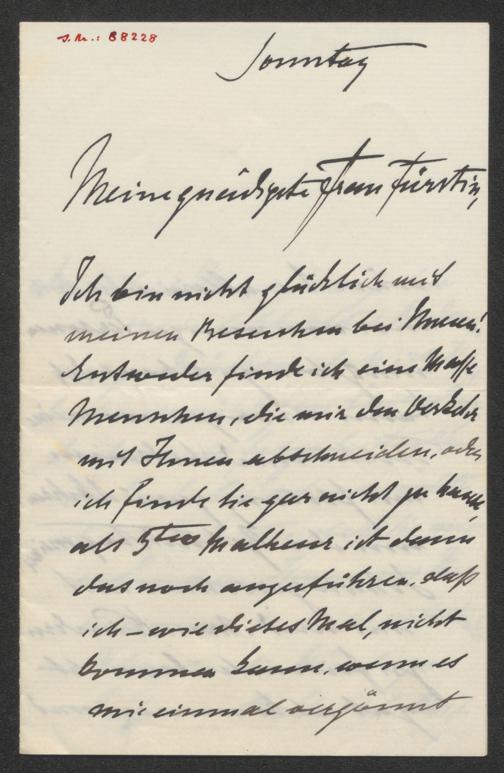 J.N.: 88228
Sonntag
Meine gnädigste Frau Fürstin,
Ich bin nicht glücklich mit
meinen Besuchen bei Ihnen!
Entweder finde ich eine Masse
Menschen, die mir den Verkehr
mit Ihnen abschneiden, oder
ich finde Sie gar nicht zu Hause,
als 5tes Malheur ist dann
das noch anzuführen, daß
ich – wie dieses Mal, nicht
kommen kann, wenn es
mir einmal vergönnt